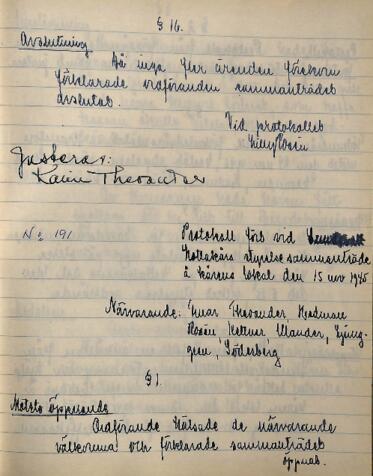 § 16.
Avslutning
Då inga fler ärenden förekom
förklarade ordföranden sammanträdet
avslutat.
Vid protokollet
Justera:
Karin Thevander
No 191
Protokoll förb vid
styrelsesammanträde
å kårens lokal den 15 nov 1945
Närvarande: Thevander,
Rosén, Wlander, Ljung-
gren, Söderberg
§ 1.
Mötets öppnande
Ordförande hälsade de närvarande
välkomna och förklarade sammanträdet
öppnat.